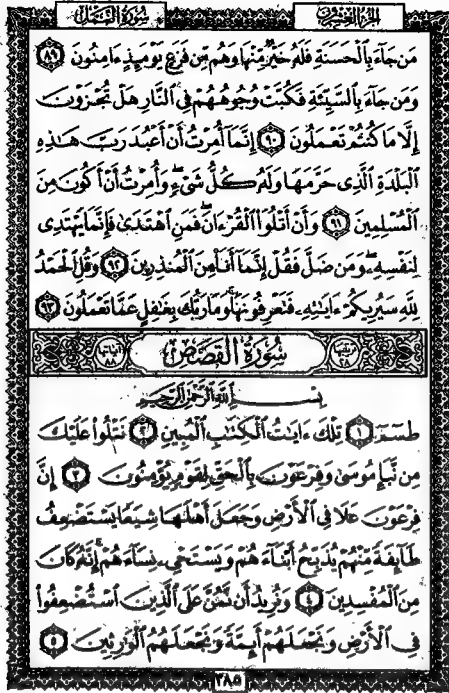 سُورَةُ النَّمْلِ الجُزءُ العِشرُونَ
مَن جَآءَ بِٱلْحَسَنَةِ فَلَهُۥ خَيْرٌ مِّنْهَا وَهُم مِّن فَزَعٍ يَوْمَئِذٍ ءَامِنُونَ ٨٩
وَمَن جَآءَ بِٱلسَّيِّئَةِ فَكُبَّتْ وُجُوهُهُمْ فِى ٱلنَّارِ هَلْ تُجْزَوْنَ
إِلَّا مَا كُنتُمْ تَعْمَلُونَ ٩٠ إِنَّمَآ أُمِرْتُ أَنْ أَعْبُدَ رَبَّ هَـٰذِهِ
ٱلْبَلْدَةِ ٱلَّذِى حَرَّمَهَا وَلَهُۥ كُلُّ شَىْءٍ ۖ وَأُمِرْتُ أَنْ أَكُونَ مِنَ
ٱلْمُسْلِمِينَ ٩١ وَأَنْ أَتْلُوَا۟ ٱلْقُرْءَانَ ۖ فَمَنِ ٱهْتَدَىٰ فَإِنَّمَا يَهْتَدِى
لِنَفْسِهِۦ ۖ وَمَن ضَلَّ فَقُلْ إِنَّمَآ أَنَا۠ مِنَ ٱلْمُنذِرِينَ ٩٢ وَقُلِ ٱلْحَمْدُ
لِلَّهِ سَيُرِيكُمْ ءَايَـٰتِهِۦ فَتَعْرِفُونَهَا ۚ وَمَا رَبُّكَ بِغَـٰفِلٍ عَمَّا تَعْمَلُونَ ٩٣
سُورَةُ القَصَصِ
بِسْمِ ٱللَّهِ ٱلرَّحْمَـٰنِ ٱلرَّحِيمِ
طسٓمٓ ١ تِلْكَ ءَايَـٰتُ ٱلْكِتَـٰبِ ٱلْمُبِينِ ٢ نَتْلُوا۟ عَلَيْكَ
مِن نَّبَإِ مُوسَىٰ وَفِرْعَوْنَ بِٱلْحَقِّ لِقَوْمٍ يُؤْمِنُونَ ٣ إِنَّ
فِرْعَوْنَ عَلَا فِى ٱلْأَرْضِ وَجَعَلَ أَهْلَهَا شِيَعًا يَسْتَضْعِفُ
طَآئِفَةً مِّنْهُمْ يُذَبِّحُ أَبْنَآءَهُمْ وَيَسْتَحْىِۦ نِسَآءَهُمْ ۚ إِنَّهُۥ كَانَ
مِنَ ٱلْمُفْسِدِينَ ٤ وَنُرِيدُ أَن نَّمُنَّ عَلَى ٱلَّذِينَ ٱسْتُضْعِفُوا۟
فِى ٱلْأَرْضِ وَنَجْعَلَهُمْ أَئِمَّةً وَنَجْعَلَهُمُ ٱلْوَٰرِثِينَ ٥
٣٨٥